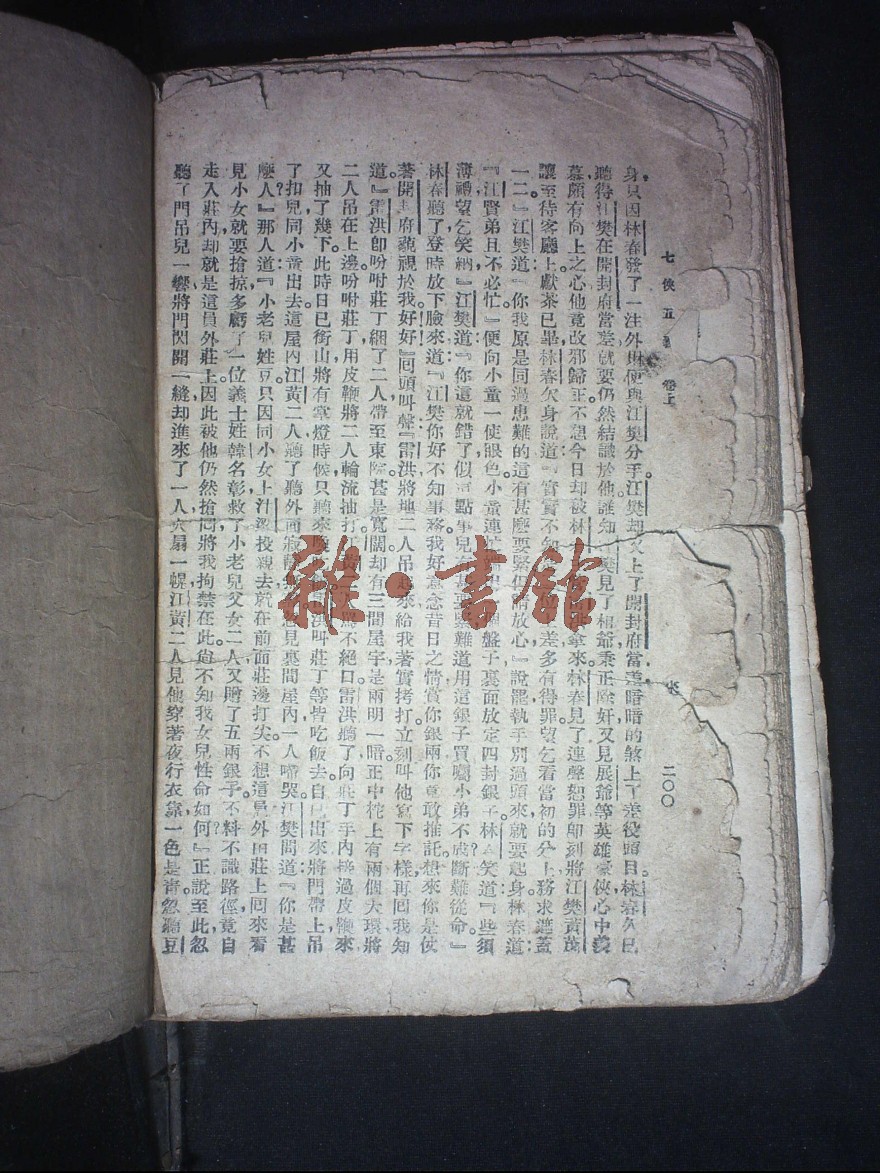 七俠五義 卷上 二〇〇
身只因林春發了一注外財便與江樊分手江樊却又上了開封府當差暗暗的熬上了差役頭目林春久已
聽得江樊在開封府當差就要仍然結識於他誰知江樊見了相爺秉正除奸又見展爺等英雄豪俠心中羨
慕頗有向上之心他竟改邪歸正不想今日却被林
拿來林春見了連聲恕罪卽刻將江樊黃茂
讓至待客廳上獻茶已畢林春欠身說道『實實不知
差多有得罪望乞看當初的分上務求遮蓋
一二』江樊道『你我原是同過患難的這有甚麽要緊但請放心』說罷執手別過頭來就要起身林春道
『江賢弟且不必忙』便向小童一使眼色小童連忙
盤子裏面放定四封銀子林春笑道『些須
薄禮望乞笑納』江樊道『你這就錯了似這點事兒有甚要緊難道用這銀子買囑小弟不成斷難從命』
林春聽了登時放下臉來道『江樊你好不知事務我好意念昔日之情賞你銀兩你竟敢推託想來你是仗
著開封府藐視於我好好』回頭叫聲『雷洪將他二人吊起來給我著實拷打立刻叫他寫下字樣再回我知
道』雷洪卽吩咐莊丁綑了二人帶至東院甚是寬闊却有三間屋宇是兩明一暗正中柁上有兩個大環將
二人吊在上邊吩咐莊丁用皮鞭將二人輪流抽打江黃二人罵不絕口雷洪聽了向莊丁手內接過皮鞭來
又抽了幾下此時日已銜山將有掌燈時候只聽來
雷洪叫莊丁等皆吃飯去自己出來將門帶上吊
了扣兒同小童出去這屋內江黃二人聽了聽外面寂靜
忽見裏間屋內一人啼哭江樊問道『你是甚
麽人』那人道『小老兒姓豆只因同小女上汴梁投親去就在前面莊邊打尖不想這員外由莊上回來看
見小女就要搶掠多虧了一位義士姓韓名彰救了小老兒父女二人又贈了五兩銀子不料不識路徑竟自
走入莊內却就是這員外莊上因此被他仍然搶回將我拘禁在此尚不知我女兒性命如何』正說至此忽
聽了門吊兒一響將門閃開一縫却進來了一人火扇一幌江黃二人見他穿著夜行衣靠一色是青忽聽豆
雜·書館